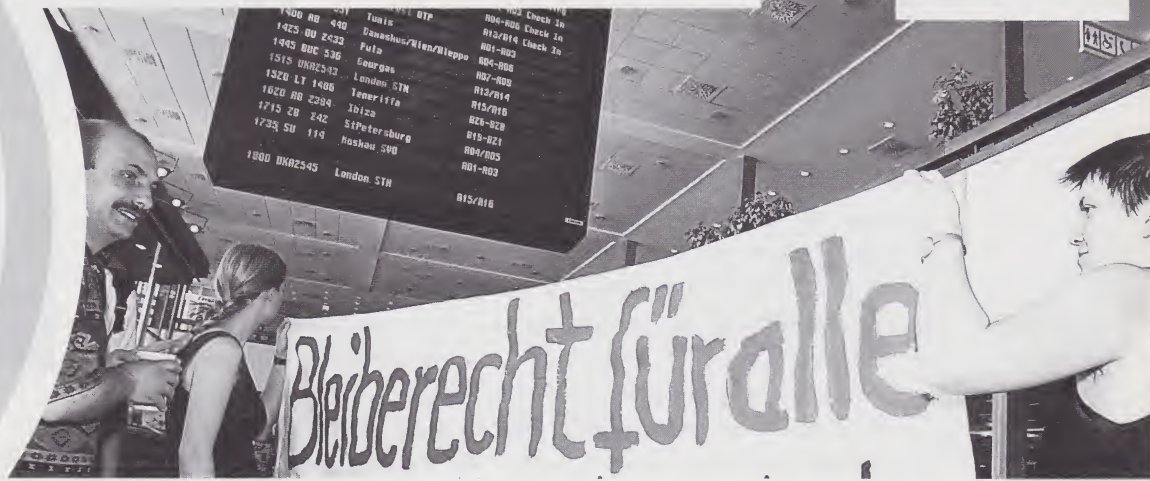 A03 Check In
1400 RB 440 Tunis A04-A06 Check In
1425 OU 2433 Damaskus/Wien/Aleppo A13/A14 Check In
1445 BUC 536 Pula A01-A03
1515 UKA2543 Gourgas A04-A06
1520 LT 1406 London STN A07-A09
1620 AB 2384 Teneriffa A13/A14
1715 ZB 242 Ibiza A15/A16
1735 SU 114 StPetersburg B26-B28
Moskau SVO B15-B21
A04/A05
A01-A03
1800 UKA2545 London STN A15/A16
Bleiberecht für alle